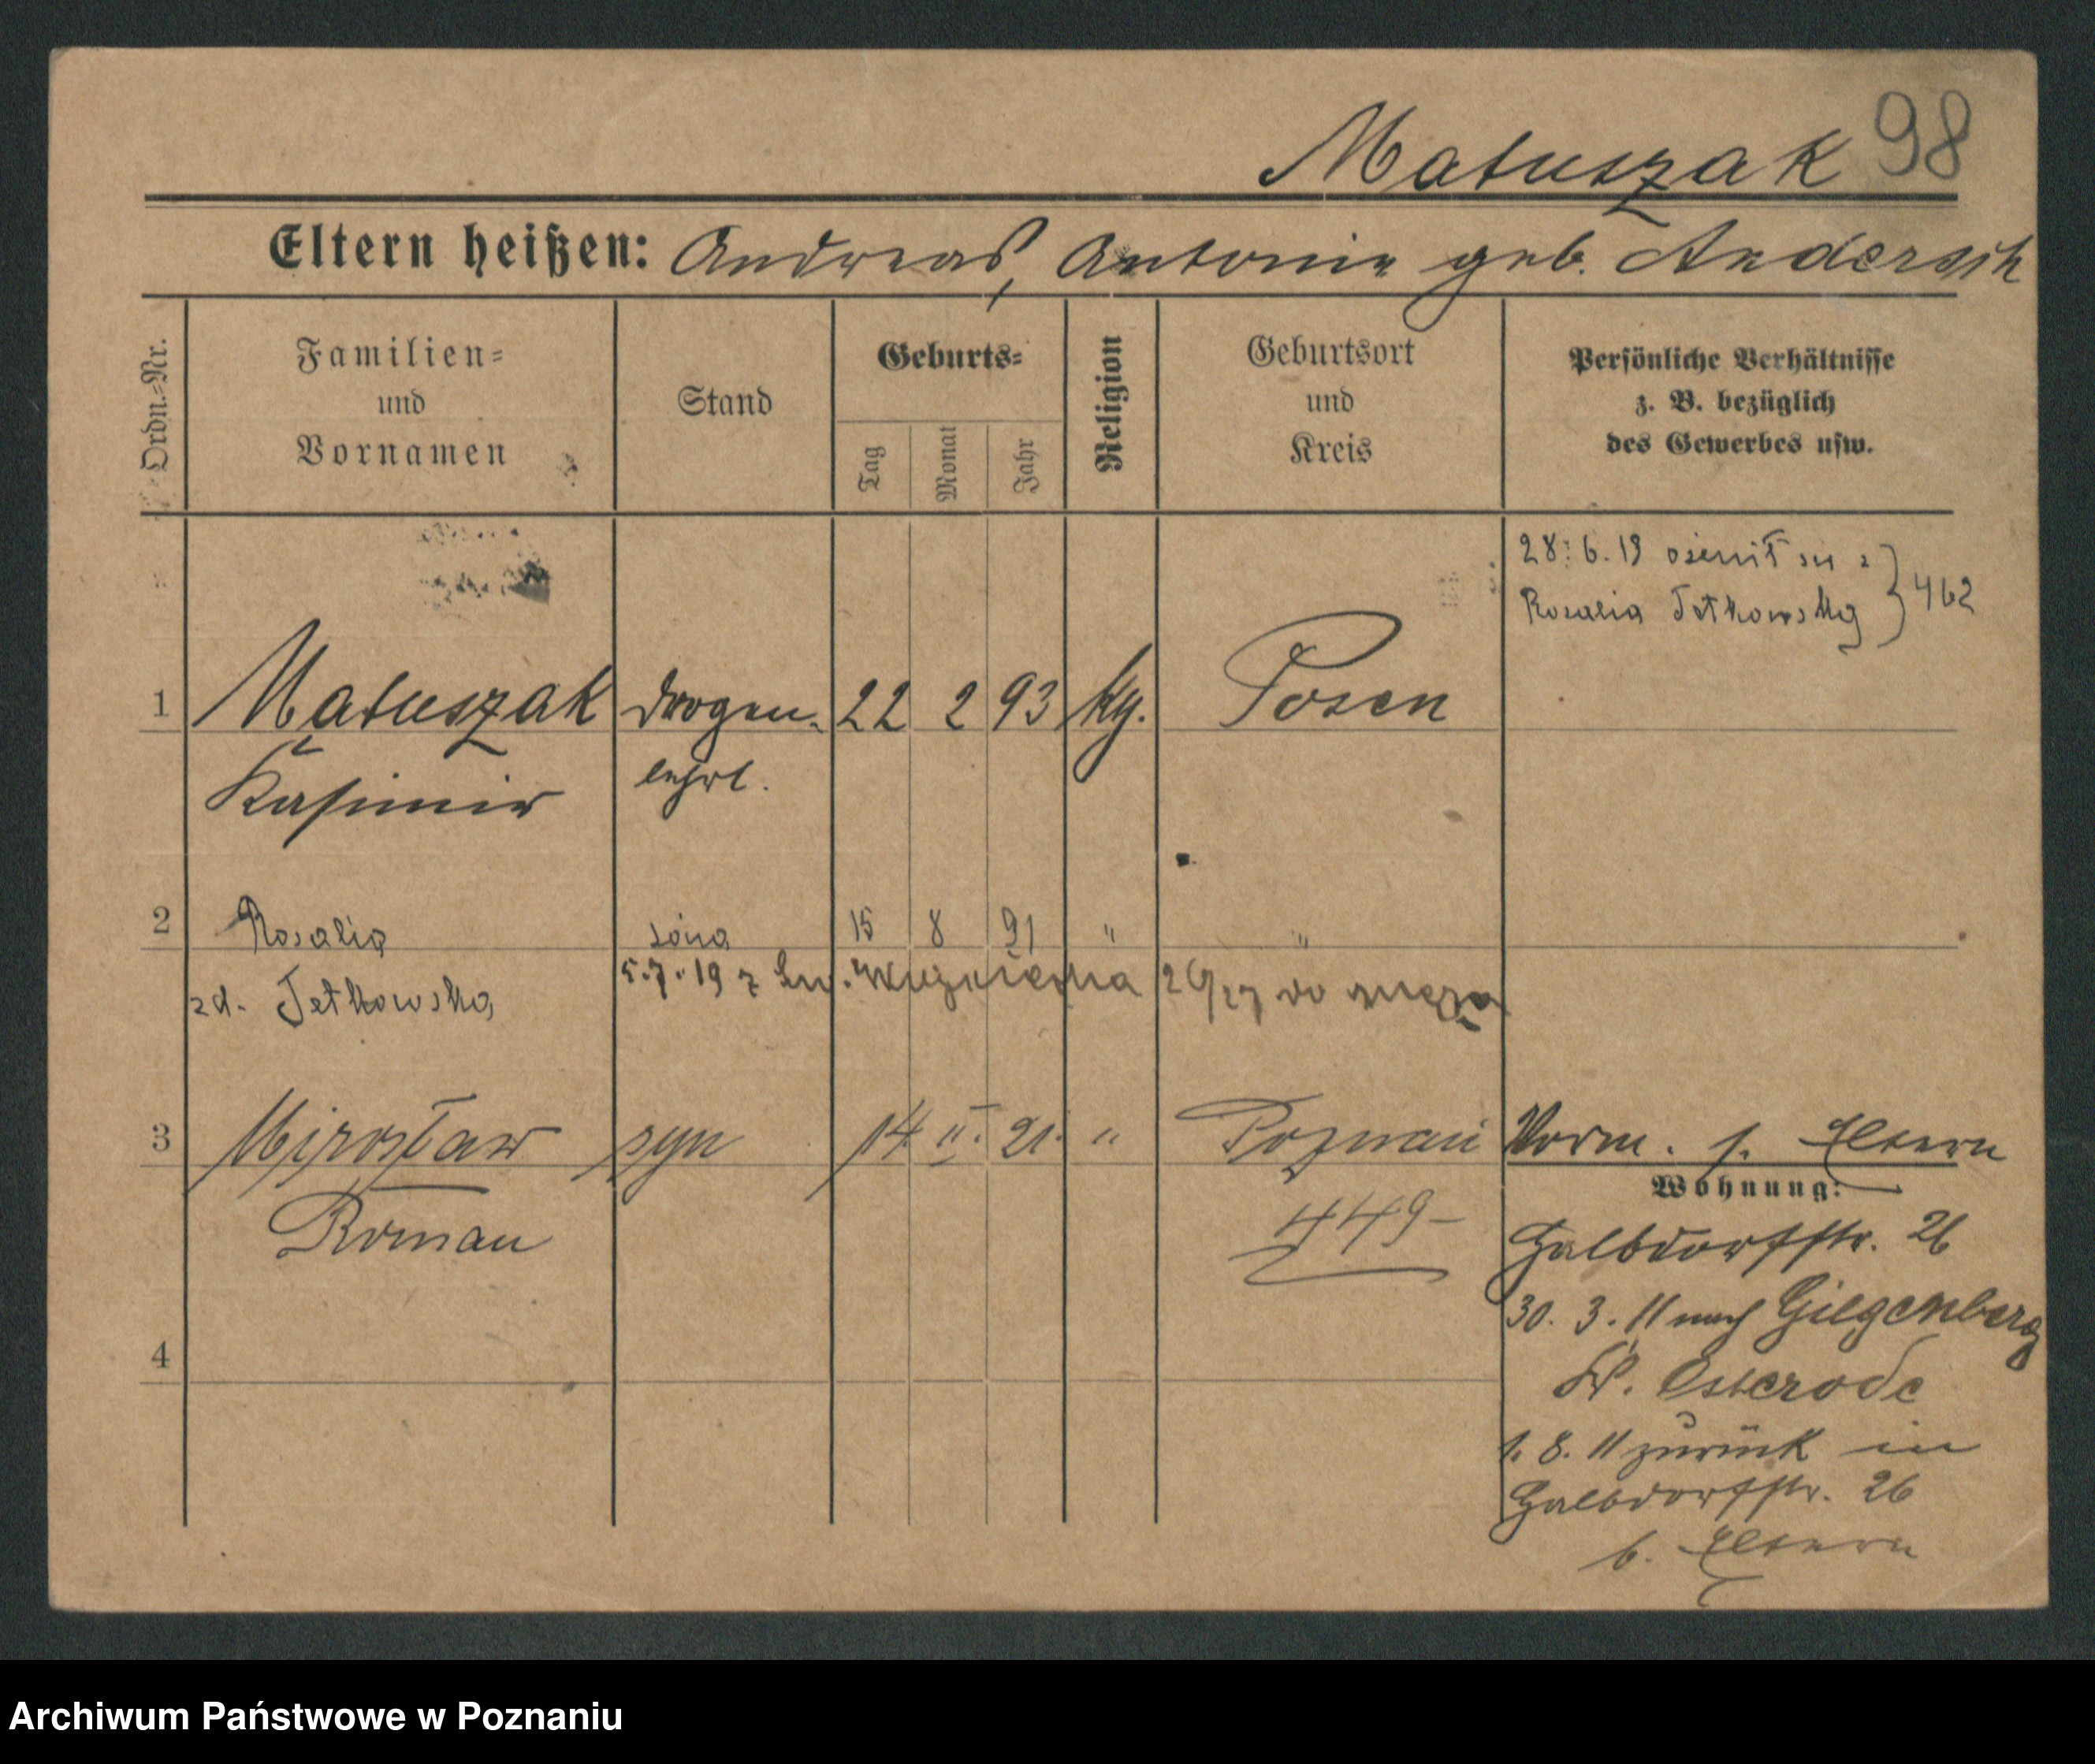 Matuszak 98
Eltern heißen: Andreas, Antonie geb. Andersch
Ordn.-Nr.
Familien-
und
Vornamen
Stand
Geburts-
Tag
Monat
Jahr
Religion
Geburtsort
und
Kreis
Persönliche Verhältnisse
z. B. bezüglich
des Gewerbes usw.
28.6.19 ożenił się z
Rosalią Tetkowską } 462
1 Matuszak Drogen- 22 2 93 kth. Posen
Kasimir lehrl.
2 Rosalia żona 15 8 91 " "
zd. Tetkowska
5.7.19 z Św. 26/27 do męża
3 Mirosław syn 14 II. 21. " Poznań
Roman
449-
Vorm. s. Eltern
Wohnung:
Halbdorfstr. 26
30. 3. 11 nach Gilgenberg
Kr. Osterode
1. 8. 11 zurück in
Halbdorfstr. 26
b. Eltern
4
Archiwum Państwowe w Poznaniu